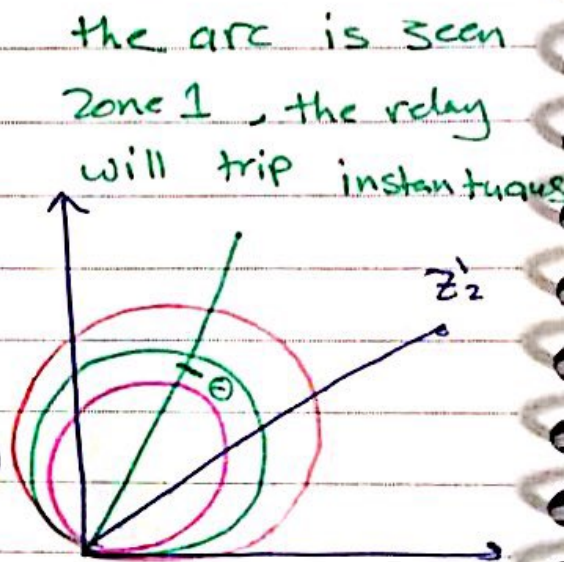 the arc is seen
Zone 1, the relay
will trip instantuqus
Z'2
Θ